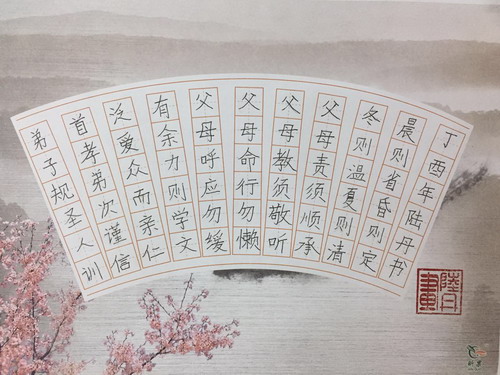 弟子规圣人训
首孝弟次谨信
泛爱众而亲仁
有余力则学文
父母呼应勿缓
父母命行勿懒
父母教须敬听
父母责须顺承
冬则温夏则清
晨则省昏则定
丁酉年陆丹书
陸丹